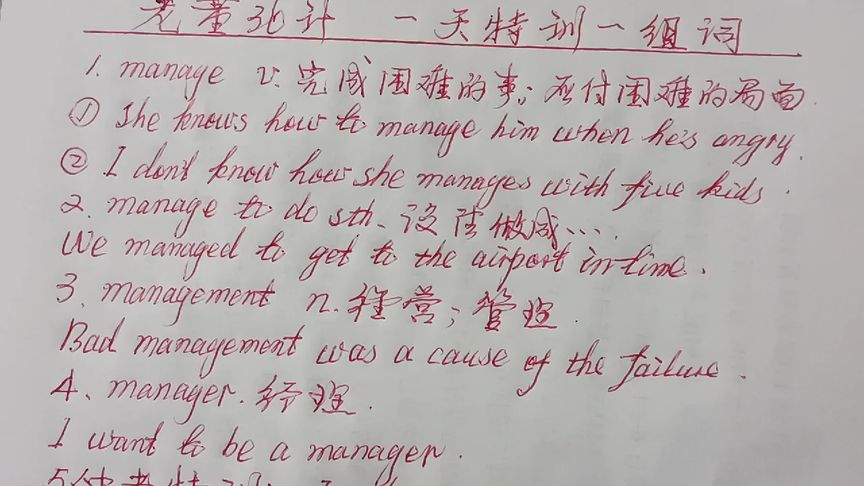 老董36计 一天特训一组词
1. manage v. 完成困难的事; 应付困难的局面.
① She knows how to manage him when he's angry.
② I don't know how she manages with five kids.
2. manage to do sth. 设法做成….
We managed to get to the airport in time.
3. management n. 经营; 管理.
Bad management was a cause of the failure.
4. manager. 经理.
I want to be a manager.